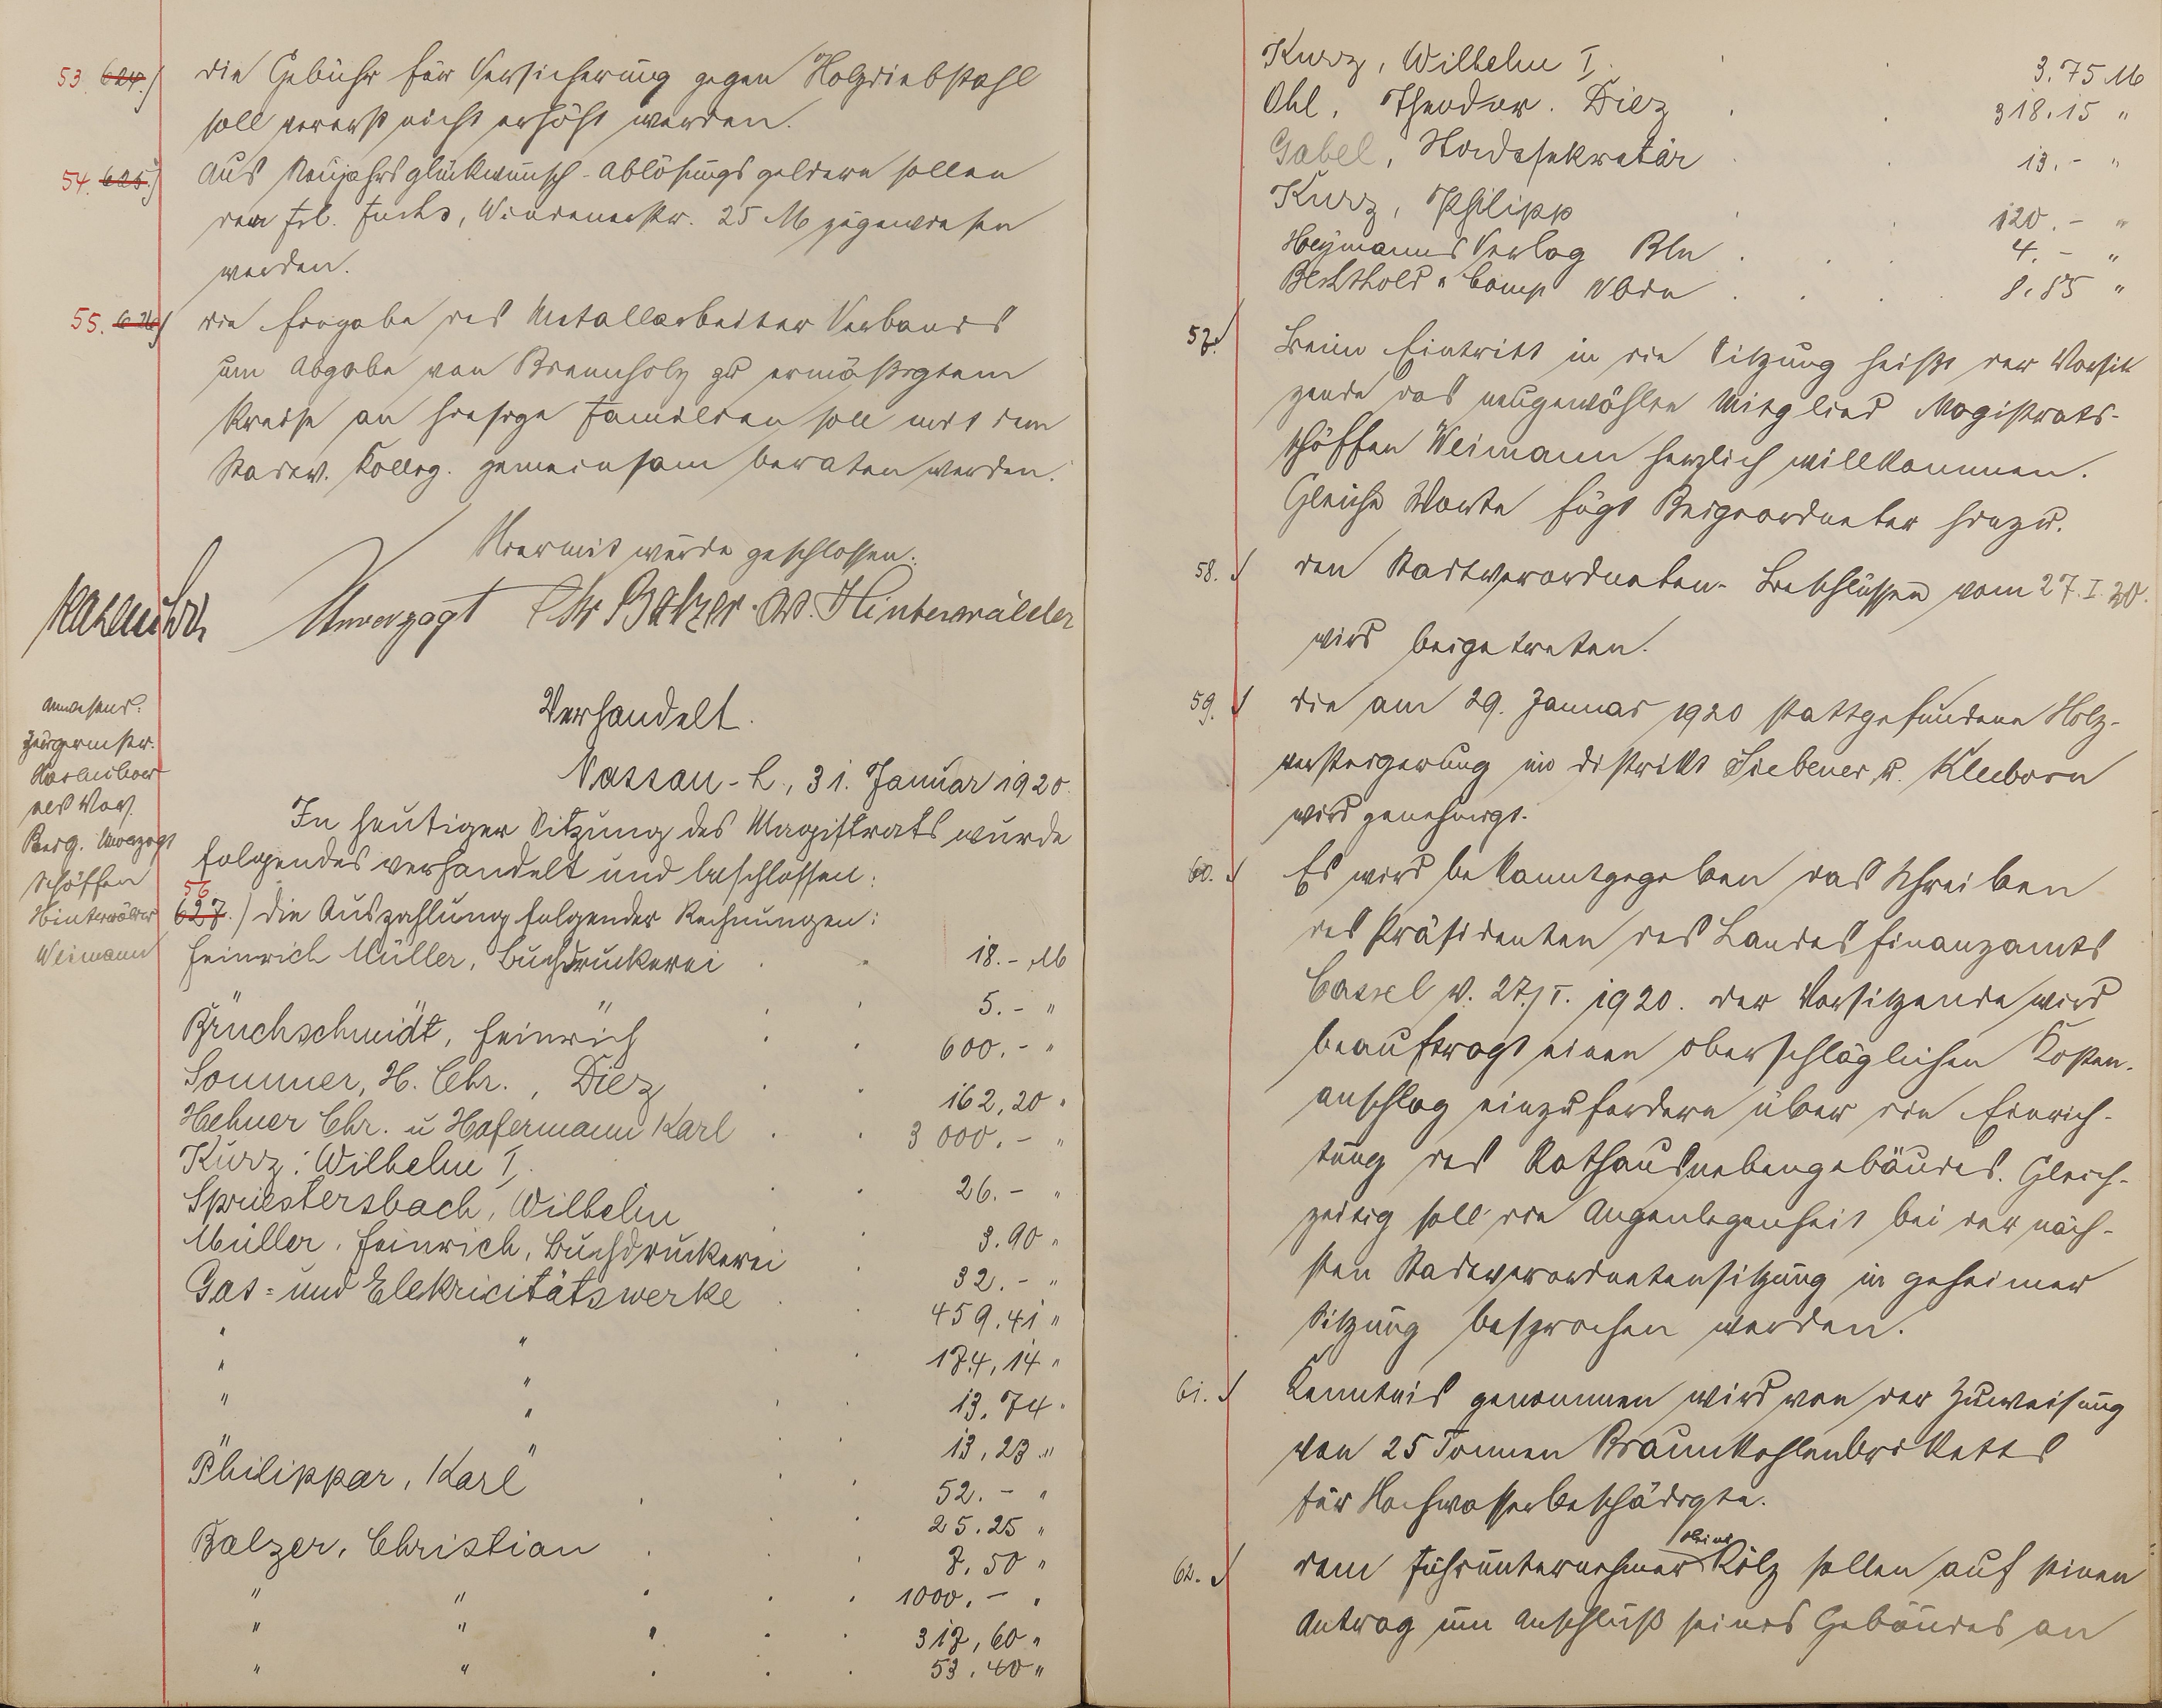 53. 624.) die Gebühr für Versicherung gegen Holzdiebstahl
soll vorerst nicht erhöht werden.
54. 625.) Aus Neujahrsglückwunsch-Ablösungsgeldern sollen
den Frl. Fuchs, Windenerstr. 25 M zugewiesen
werden.
55. 626.) die Eingabe des Metallarbeiter Verbands
um Abgabe von Brennholz zu ermäßigtem
Preise an hiesige Familien soll mit dem
Stadtv. Kolleg. gemeinsam beraten werden.
Hiermit wurde geschlossen.
Hasenclever Unverzagt Chr Balzer. W. Hinterwälder
Verhandelt.
Nassau-L., 31. Januar 1920.
Anwesend:
Bürgermstr.
Hasenclever
als Vors.
Beig. Unverzagt
Schöffen
Hinterwälder
Weimann
In heutiger Sitzung des Magistrats wurde
folgendes verhandelt und beschlossen:
56 627.) die Auszahlung folgender Rechnungen:
Heinrich Müller, Buchdruckerei . . 18.- M
" " . . 5.- "
Bruchschmidt, Heinrich . . 600.- "
Sommer, H. Chr., Diez . . 162,20 "
Hehner Chr. u Hafermann Karl . . 3 000.- "
Kurz: Wilhelm I. . . 26.- "
Spriestersbach, Wilhelm . . 3.90 "
Müller, Heinrich, Buchdruckerei . 32.- "
Gas- und Elektricitätswerke . . 459.41 "
" " . . 174,14 "
" " . . 13.74 "
" " . . 13,23 "
" " . . 52.- "
Philippar, Karl . . . 25.25 "
Balzer, Christian . . . 7.50 "
" " . . . 1000.- "
" " . . . 317,60 "
" " . . . 53.40 "
Kurz, Wilhelm I. . . 3.75 M
Ohl, Theodor. Diez . . 318.15 "
Gabel, Stadtsekretär . . 13.- "
Kurz, Philipp . . 120.- "
Heymanns Verlag Bln . . . 4.- "
Bechthold u Comp Wbdn . . . 8.85 "
57. Beim Eintritt in die Sitzung heißt der Vorsit
zende das neugewählte Mitglied Magistrats-
schöffen Weimann herzlich willkommen.
Gleiche Worte fügt Beigeordneter hinzu.
58. den Stadtverordneten-Beschlüssen vom 27.I.20.
wird beigetreten.
59. die am 29. Januar 1920 stattgefundene Holz-
versteigerung im Distrikt Siebener u. Kleeborn
wird genehmigt.
60. Es wird bekanntgegeben das Schreiben
des Präsidenten des Landesfinanzamts
Cassel v. 27./I. 1920. der Vorsitzende wird
beauftragt einen oberschläglichen Kosten-
anschlag einzufordern über die Einrich-
tung des Rathausnebengebäudes. Gleich-
zeitig soll die Angenlegenheit bei der näch-
sten Stadtverordnetensitzung in geheimer
Sitzung besprochen werden.
61. Kenntnis genommen wird von der Zuweisung
von 25 Tonnen Braunkohlenbriketts
für Hochwasserbeschädigte.
62. dem Fuhrunternehmer Külz sollen auf seinen
Antrag um Anschluß seines Gebäudes an